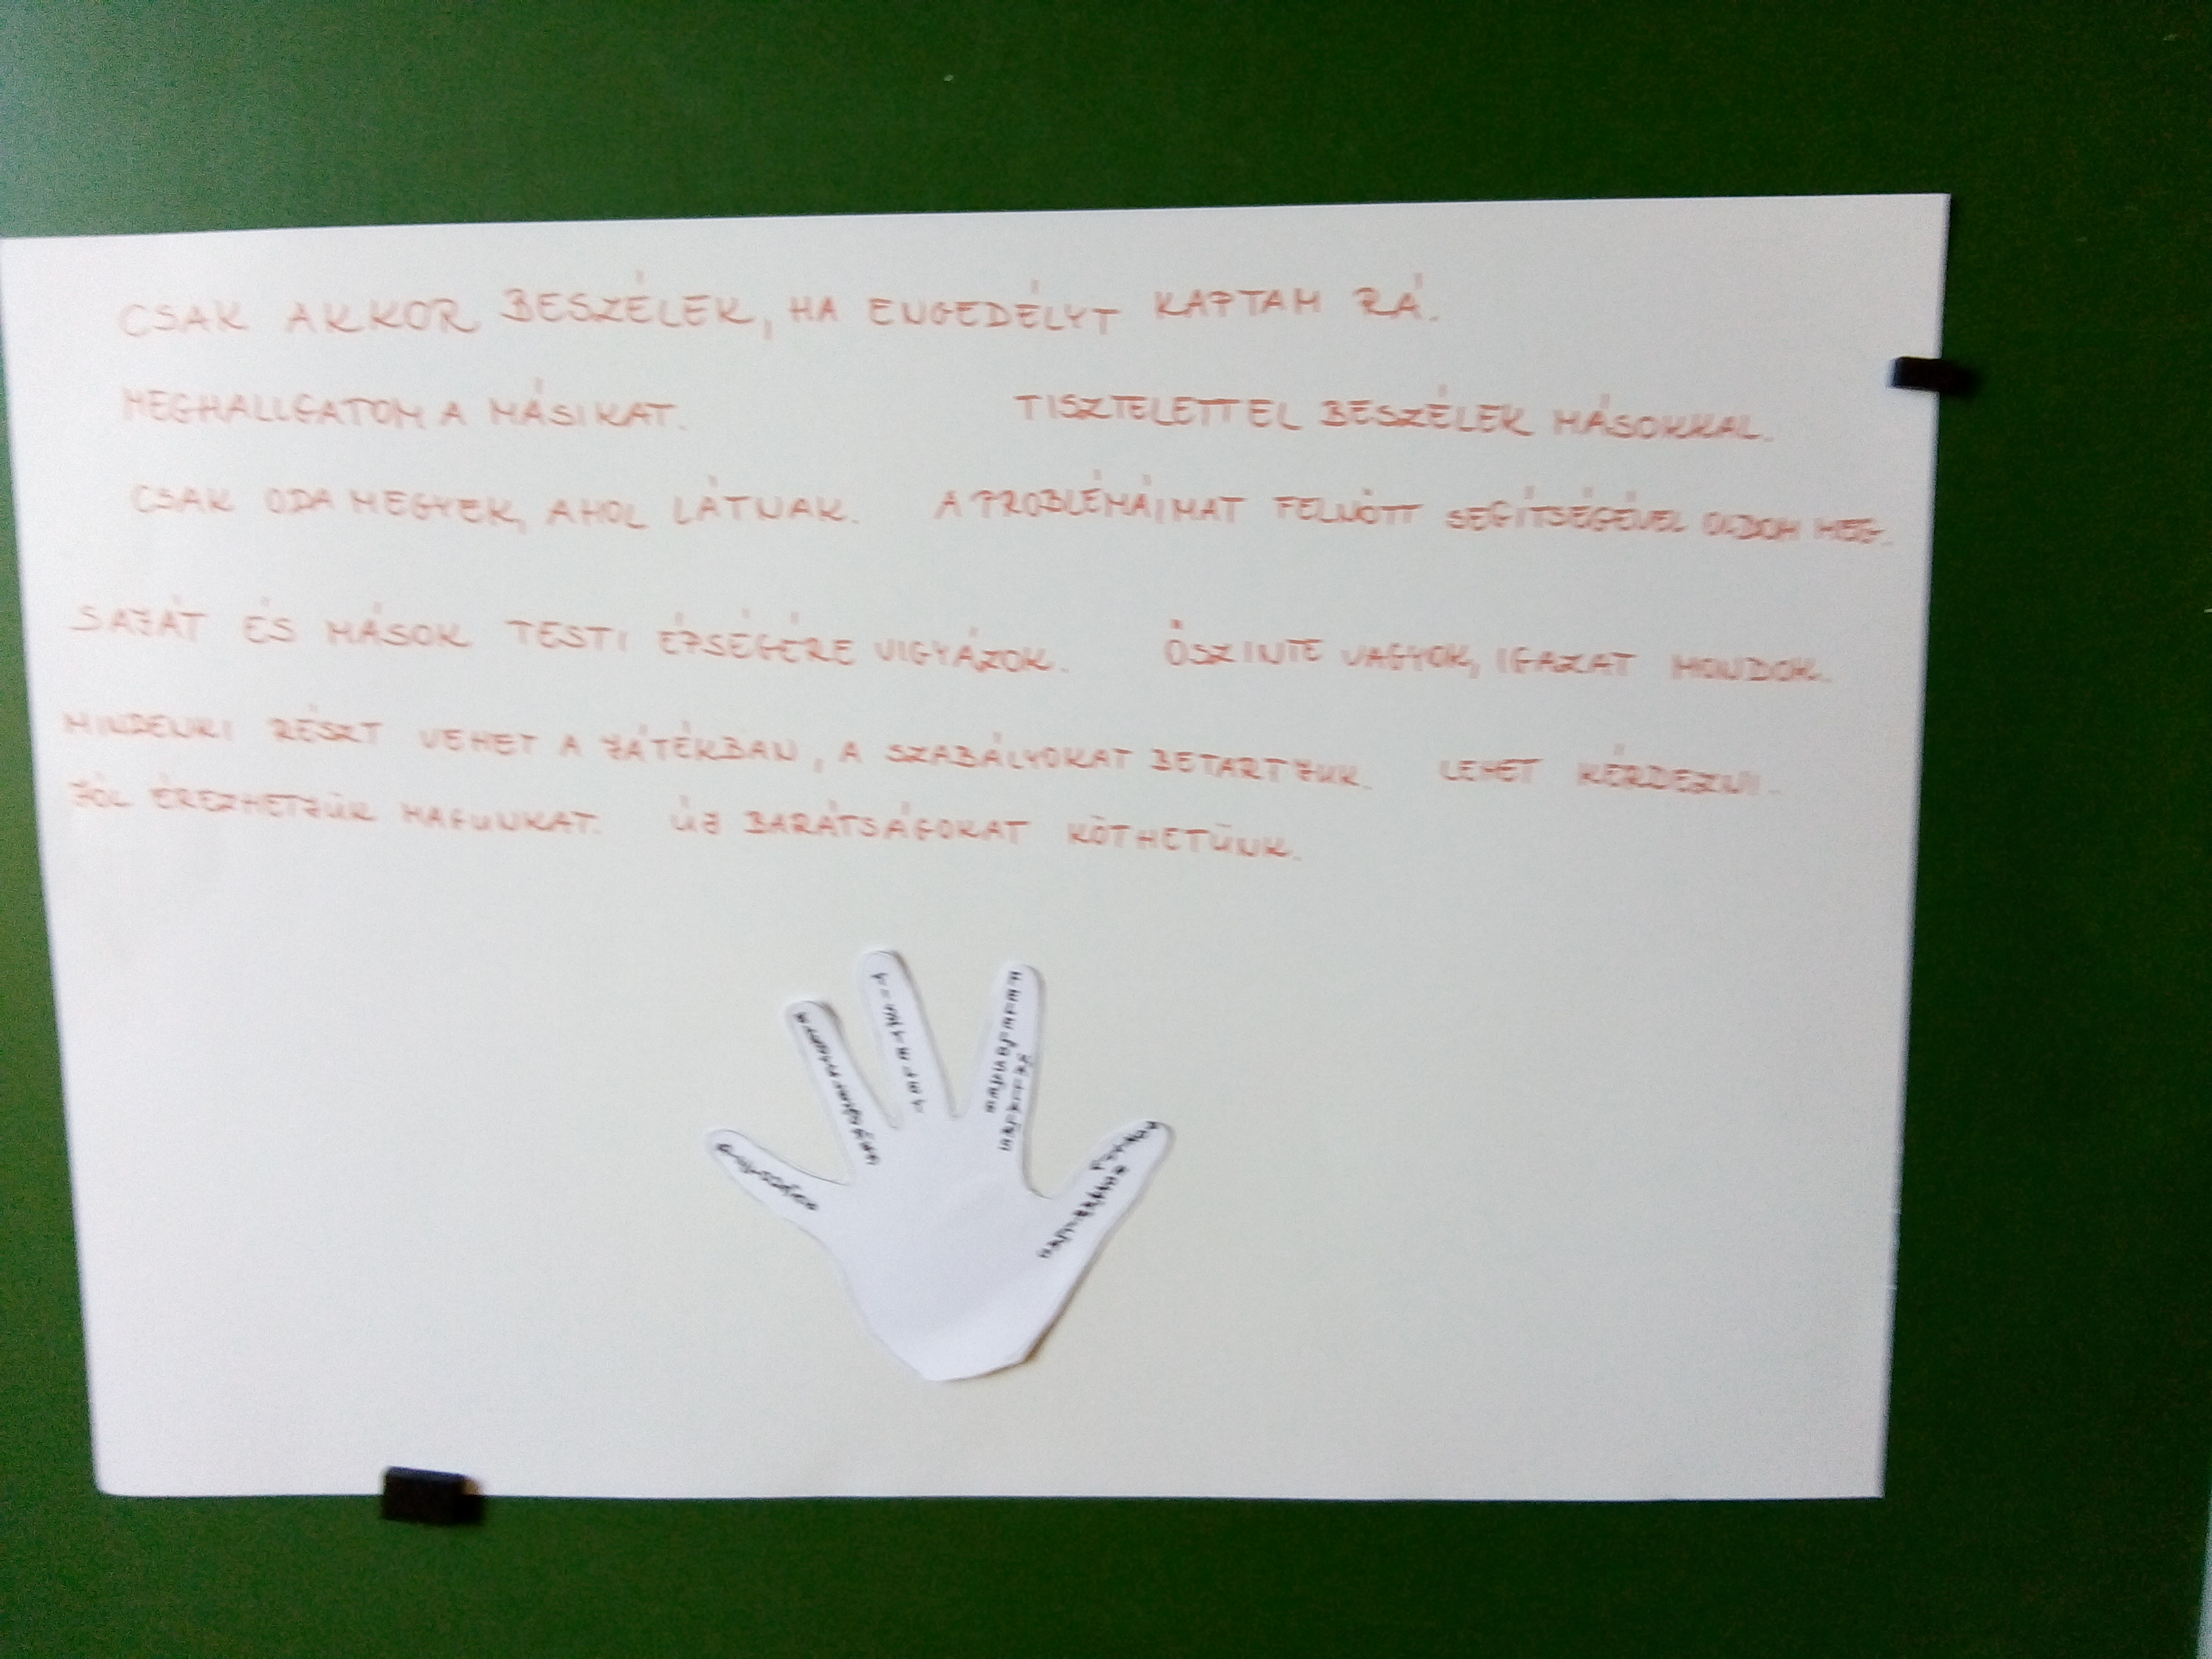 CSAK AKKOR BESZÉLEK, HA ENGEDÉLYT KAPTAM RÁ.
MEGHALLGATOM A MÁSIKAT. TISZTELETTEL BESZÉLEK MÁSOKKAL.
CSAK ODA MEGYEK, AHOL LÁTNAK. A PROBLÉMÁIMAT FELNŐTT SEGÍTSÉGÉVEL OLDOM MEG.
SAJÁT ÉS MÁSOK TESTI ÉPSÉGÉRE VIGYÁZOK. ŐSZINTE VAGYOK, IGAZAT MONDOK.
MINDENKI RÉSZT VEHET A JÁTÉKBAN, A SZABÁLYOKAT BETARTJUK. LEHET KÉRDEZNI.
JÓL ÉREZHETJÜK MAGUNKAT. ÚJ BARÁTSÁGOKAT KÖTHETÜNK.